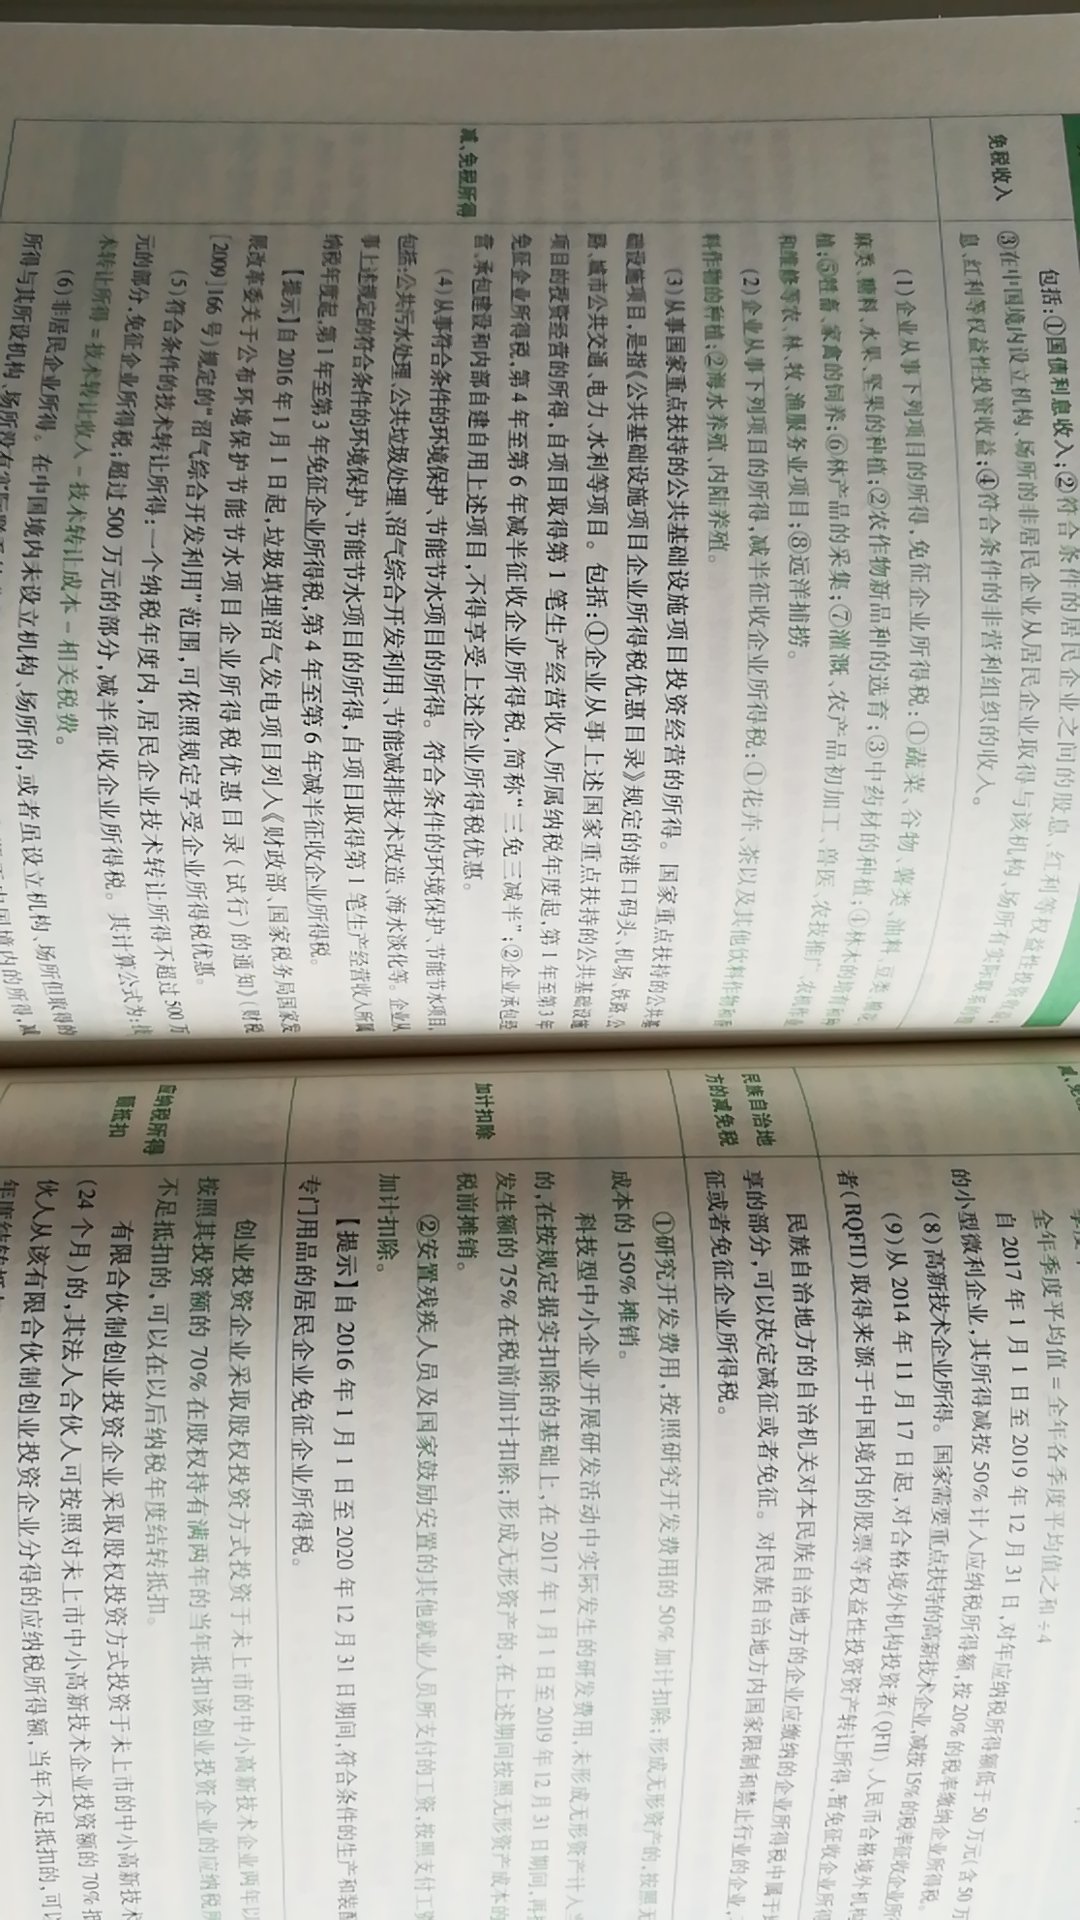 免税收入
包括:①国债利息收入;②符合条件的居民企业之间的股息、红利等权益性投资收益;
③在中国境内设立机构、场所的非居民企业从居民企业取得与该机构、场所有实际联系的股
息、红利等权益性投资收益;④符合条件的非营利组织的收入。
减、免税所得
(1)企业从事下列项目的所得,免征企业所得税:①蔬菜、谷物、薯类、油料、豆类、棉花、
麻类、糖料、水果、坚果的种植;②农作物新品种的选育;③中药材的种植;④林木的培育和种
植;⑤牲畜、家禽的饲养;⑥林产品的采集;⑦灌溉、农产品初加工、兽医、农技推广、农机作业
和维修等农、林、牧、渔服务业项目;⑧远洋捕捞。
(2)企业从事下列项目的所得,减半征收企业所得税:①花卉、茶以及其他饮料作物和香
料作物的种植;②海水养殖、内陆养殖。
(3)从事国家重点扶持的公共基础设施项目投资经营的所得。国家重点扶持的公共基
础设施项目,是指《公共基础设施项目企业所得税优惠目录》规定的港口码头、机场、铁路、公
路、城市公共交通、电力、水利等项目。包括:①企业从事上述国家重点扶持的公共基础设施
项目的投资经营的所得,自项目取得第1笔生产经营收入所属纳税年度起,第1年至第3年
免征企业所得税,第4年至第6年减半征收企业所得税,简称“三免三减半”;②企业承包经
营、承包建设和内部自建自用上述项目,不得享受上述企业所得税优惠。
(4)从事符合条件的环境保护、节能节水项目的所得。符合条件的环境保护、节能节水项目,
包括:公共污水处理、公共垃圾处理、沼气综合开发利用、节能减排技术改造、海水淡化等。企业从
事上述规定的符合条件的环境保护、节能节水项目的所得,自项目取得第1笔生产经营收入所属
纳税年度起,第1年至第3年免征企业所得税,第4年至第6年减半征收企业所得税。
【提示】自2016年1月1日起,垃圾填埋沼气发电项目列入《财政部、国家税务局国家发
展改革委关于公布环境保护节能节水项目企业所得税优惠目录(试行)的通知》(财税
[2009]166号)规定的“沼气综合开发利用”范围,可依照规定享受企业所得税优惠。
(5)符合条件的技术转让所得:一个纳税年度内,居民企业技术转让所得不超过500万
元的部分,免征企业所得税;超过500万元的部分,减半征收企业所得税。其计算公式为:技
术转让所得=技术转让收入-技术转让成本-相关税费。
(6)非居民企业所得。在中国境内未设立机构、场所的,或者虽设立机构、场所但取得的
所得与其所设机构、场所没有实际联系的
境内的所得,减
减、免
全年季度平均值=全年各季度平均值之和÷4
自2017年1月1日至2019年12月31日,对年应纳税所得额低于50万元(含50万
的小型微利企业,其所得减按50%计入应纳税所得额,按20%的税率缴纳企业所得税。
(8)高新技术企业所得。国家需要重点扶持的高新技术企业,减按15%的税率征收企业所
(9)从2014年11月17日起,对合格境外机构投资者(QFII)、人民币合格境外机构
者(RQFII)取得来源于中国境内的股票等权益性投资资产转让所得,暂免征收企业所得
民族自治地
方的减免税
民族自治地方的自治机关对本民族自治地方的企业应缴纳的企业所得税中属于地
享的部分,可以决定减征或者免征。对民族自治地方内国家限制和禁止行业的企业,
征或者免征企业所得税。
加计扣除
①研究开发费用,按照研究开发费用的50%加计扣除;形成无形资产的,按照无
成本的150%摊销。
科技型中小企业开展研发活动中实际发生的研发费用,未形成无形资产计入当
的,在按规定据实扣除的基础上,在2017年1月1日至2019年12月31日期间,再按
发生额的75%在税前加计扣除;形成无形资产的,在上述期间按照无形资产成本的
税前摊销。
②安置残疾人员及国家鼓励安置的其他就业人员所支付的工资,按照支付工资
加计扣除。
【提示】自2016年1月1日至2020年12月31日期间,符合条件的生产和装配
专门用品的居民企业免征企业所得税。
应纳税所得
额抵扣
创业投资企业采取股权投资方式投资于未上市的中小高新技术企业两年以
按照其投资额的70%在股权持有满两年的当年抵扣该创业投资企业的应纳税所
不足抵扣的,可以在以后纳税年度结转抵扣。
有限合伙制创业投资企业采取股权投资方式投资于未上市的中小高新技术
(24个月)的,其法人合伙人可按照对未上市中小高新技术企业投资额的70%抵
伙人从该有限合伙制创业投资企业分得的应纳税所得额,当年不足抵扣的,可以
年度结转抵扣